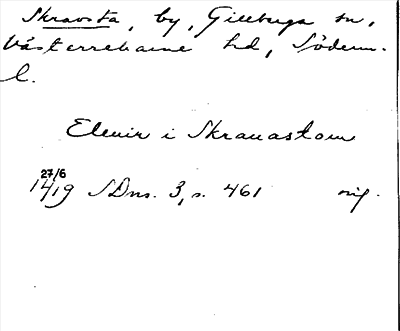 Skravsta, by, Gillberga sn,
Västerrekarne hd, Söderm.
l.
Elenir i Skrauastom
27/6
1419 SDns. 3, s. 461 orig.